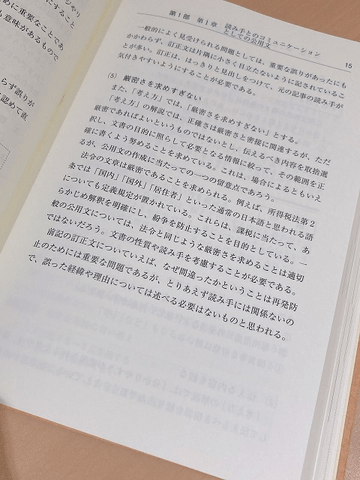 めに重要なことであ
も意味があるもので
ジャやり
すること
らず誤りが
認めて責
第1部 第1章 読み手とのコミュニケーション
としての公用文
15
一般的によく見受けられる問題としては、重要な誤りがあったにも
かかわらず、訂正文は片隅に小さく目立たないように記されているこ
とが多い。訂正は、はっきりと見出しをつけて、元の記事の読み手が
気付きやすいように配慮することが必要である。
(5) 厳密さを求めすぎない
また、「考え方」では、「厳密さを求めすぎない」とする。
「考え方」の解説では、正確さは厳密さと密接に関連するが、ただ
厳密であればよいというものではないとし、伝えるべき内容を取捨選
択し、文書の目的に照らして必要となる情報に絞って、その範囲を正
確に書くよう努めることを求めている。これは、場合によるともいえ
るが、公用文の作成に当たっての一つの留意点であろう。
法令の文章は厳密であることを求められる。例えば、所得税法第2
条では「国内」「国外」「居住者」といった通常の日本語と思われる語
についても定義規定が置かれている。これらは、課税に当たって、あ
らかじめ解釈を明確にし、紛争を防止することを目的としている。一
般の公用文については、法令と同じような厳密さを求めることは適切
ではないだろう。文書の性質や読み手を考慮することが必要である。
前記の訂正文についていえば、なぜ間違ったかということは再発防
止のためには重要な問題であるが、とりあえず読み手には関係ないの
で、誤った経緯や理由については述べる必要はないものと思われる。